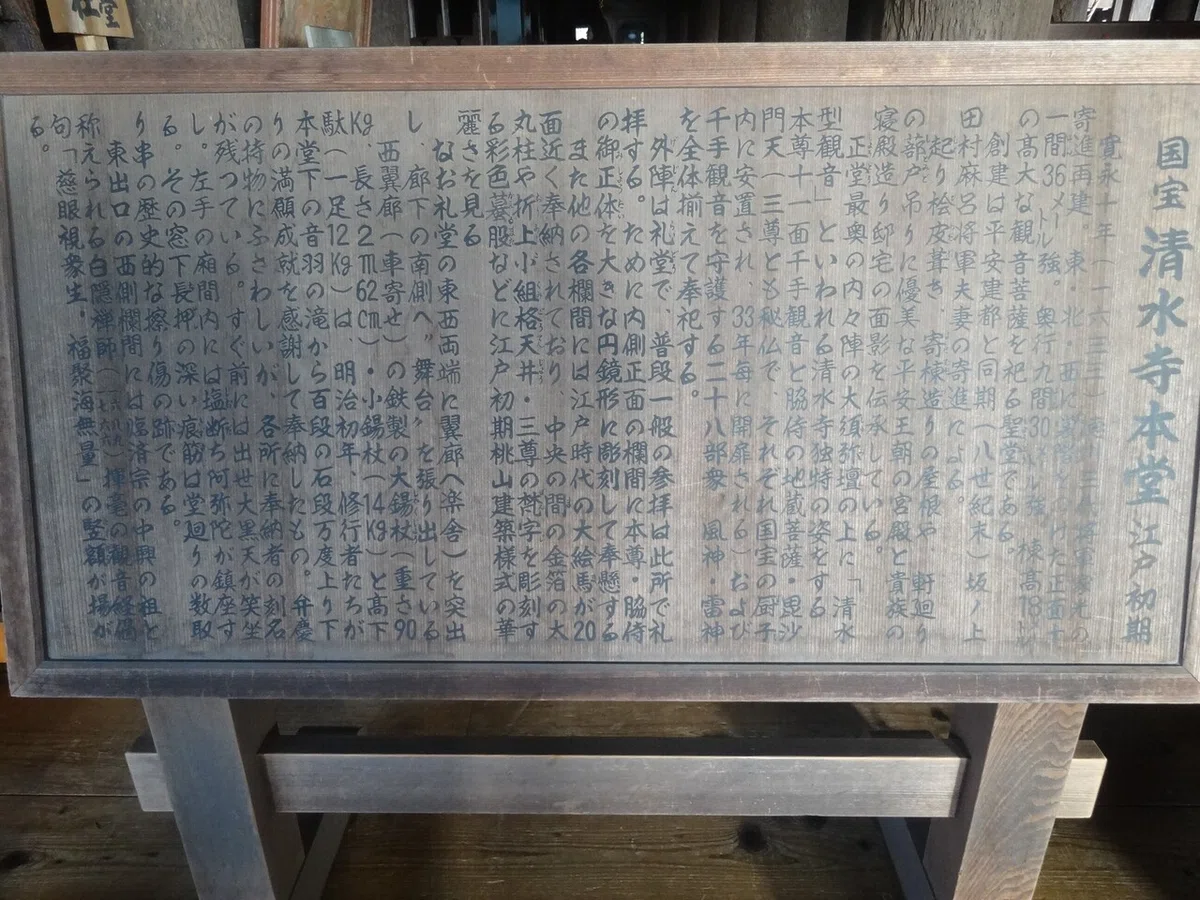 国宝 清水寺本堂 江戸初期
寛永十年(一六三三)
寄進再建。東・北・西に
一間36メートル強。奥行九間30 棟高18
の高大な観音菩薩を祀る聖堂である
創建は平安建都と同期(八世紀末)坂ノ上
田村麻呂将軍夫妻の寄進による。
起り桧皮葺き、寄棟造りの屋根や 軒廻り
の蔀戸吊りに優美な平安王朝の宮殿と貴族の
寝殿造り邸宅の面影を伝承している。
正堂最奥の内々陣の大須弥壇の上に「清水
型観音」といわれる清水寺独特の姿をする
本尊十一面千手観音と脇侍の地蔵菩薩・毘沙
門天(三尊とも秘仏で、それぞれ国宝の厨子
内に安置され、33年毎に開扉される)および
千手観音を守護する二十八部衆、風神・雷神
を全体揃えて奉祀する。
外陣は礼堂で、普段一般の参拝は此所で礼
拝する。ために内側正面の欄間に本尊・脇侍
の御正体を大きな円鏡形に彫刻して奉懸する
また他の各欄間には江戸時代の大絵馬が20
面近く奉納されており 中央の間の金箔の大
丸柱や折上小組格天井・三尊の梵字を彫刻す
る彩色蟇股などに江戸初期桃山建築様式の華
麗さを見る
なお礼堂の東西両端に翼廊(楽舎)を突出
し、廊下の南側へ〝舞台〟を張り出している
西翼廊(車寄せ)の鉄製の大錫杖(重さ90
Kg、長さ2m62cm)・小錫杖(14Kg)と高下
駄(一足12Kg)は、明治初年、修行者たちが
本堂下の音羽の滝から百段の石段万度上り下
りの満願成就を感謝して奉納したもの。弁慶
の持物にふさわしいが、各所に奉納者の刻名
が残っている。すぐ前には出世大黒天が笑坐
し。左手の廂間内には塩断ち阿弥陀が鎮座す
る。その窓下長押の深い痕筋は堂廻りの数取
り串の歴史的な擦り傷の跡である。
東出口の西側欄間には臨済宗の中興の祖と
称えられる白隠禅師 揮毫の観音経偈
句「慈眼視衆生・福聚海無量」の竪額が揚が
る。